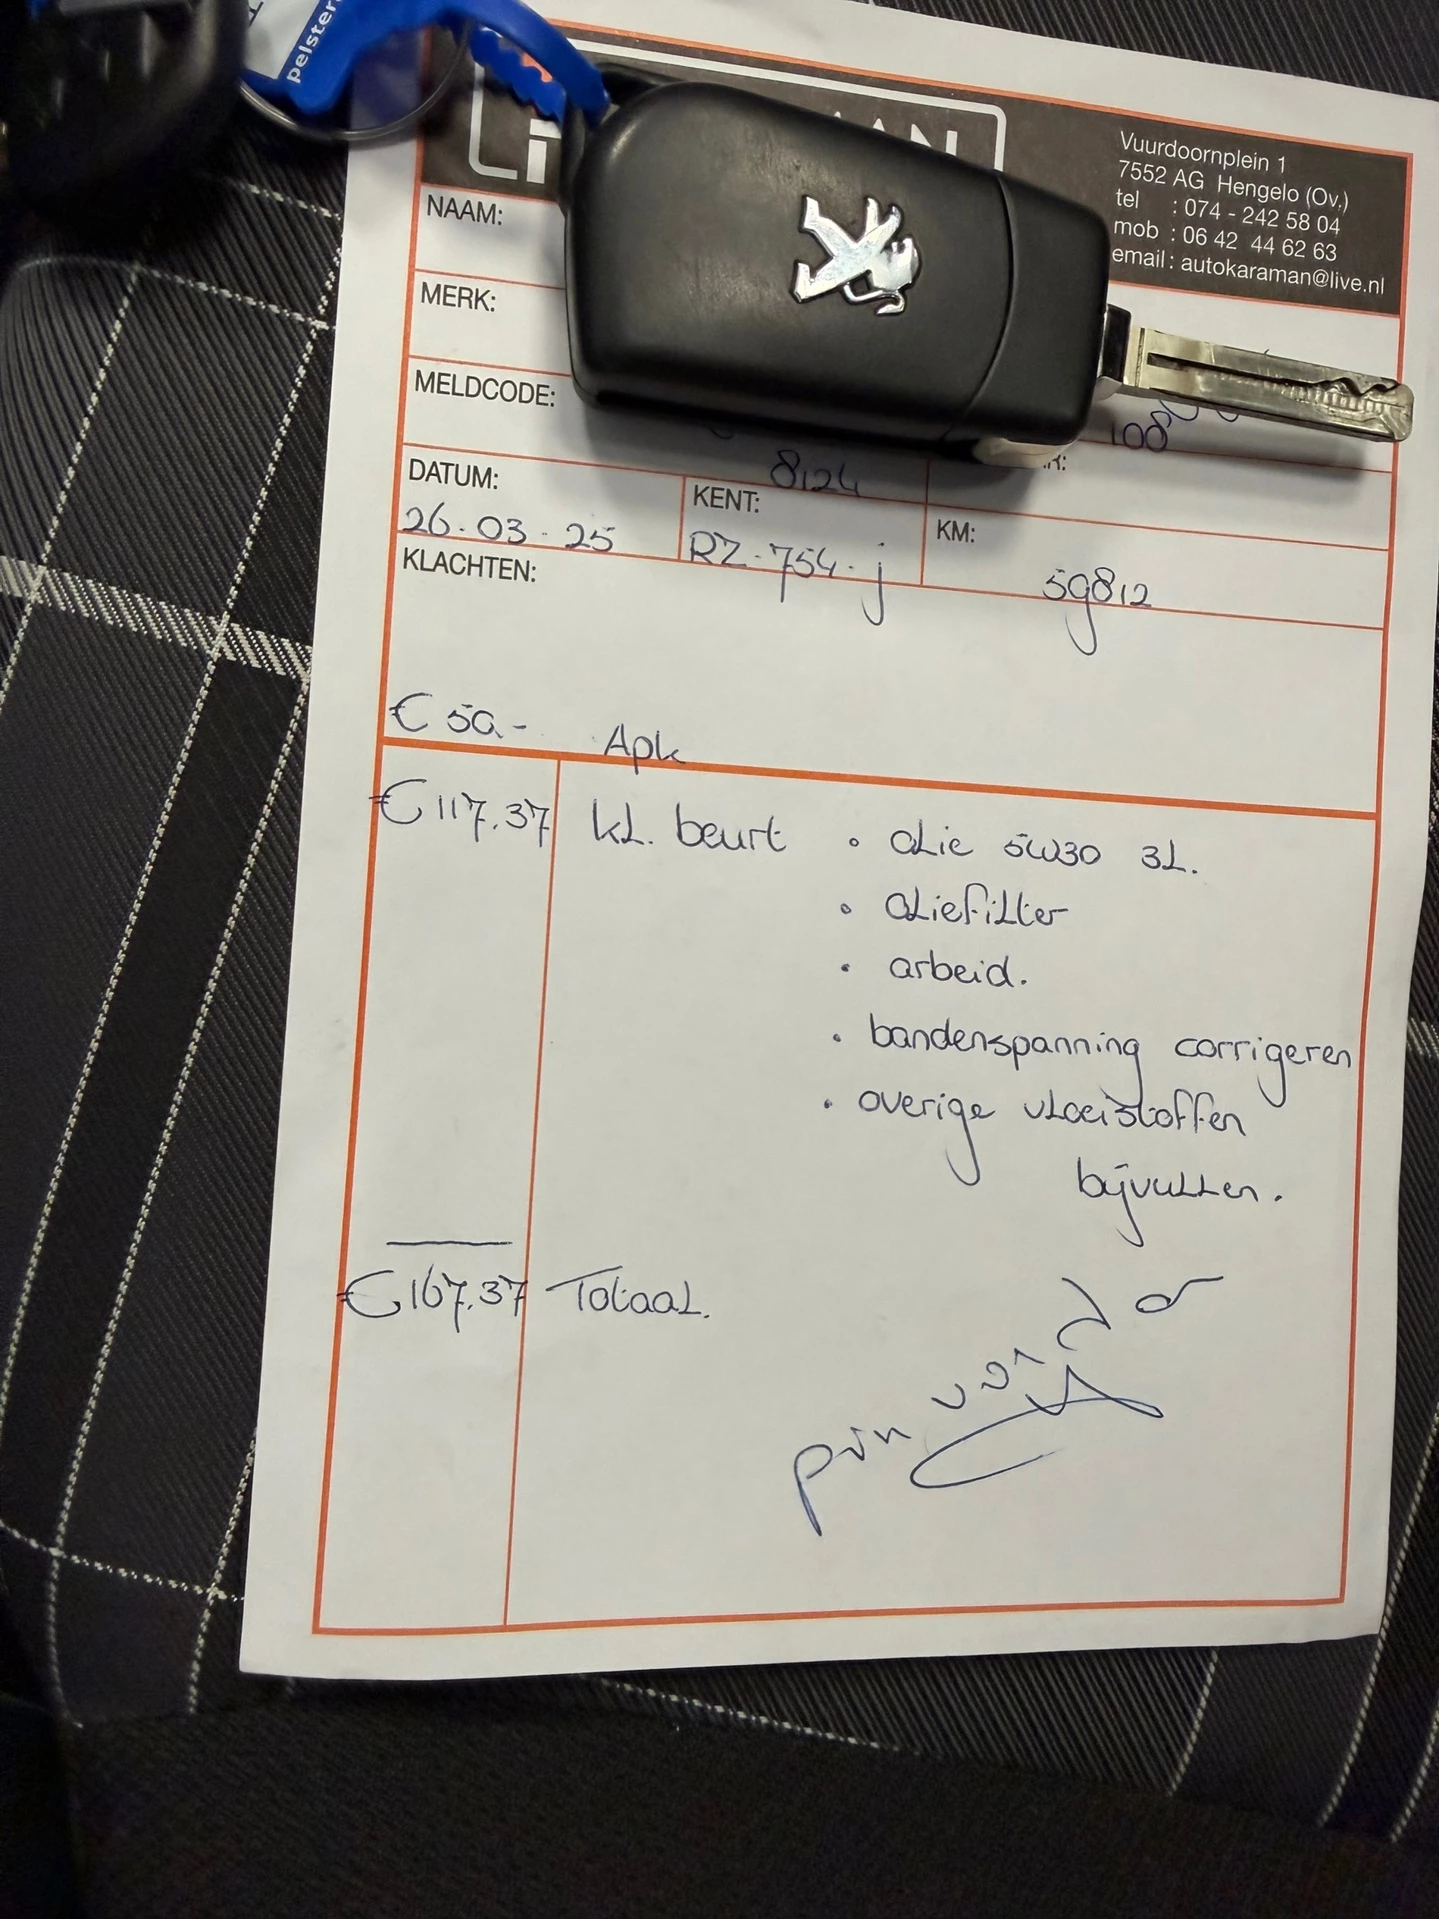 pelster
MAN
Vuurdoornplein 1
7552 AG Hengelo (Ov.)
tel : 074 - 242 58 04
mob : 06 42 44 62 63
email : autokaraman@live.nl
NAAM:
MERK:
MELDCODE:
108
8124
DATUM:
26-03-25
KENT:
RZ-754-j
KM:
59812
KLACHTEN:
€ 50,- Apk
€ 117.37 kL. beurt • oLie 5W30 3L.
• oLiefiLter
• arbeid.
• bandenspanning corrigeren
• overige vLoeistoffen
bijvuLLen.
€ 167.37 TotaaL.
pin voldaan